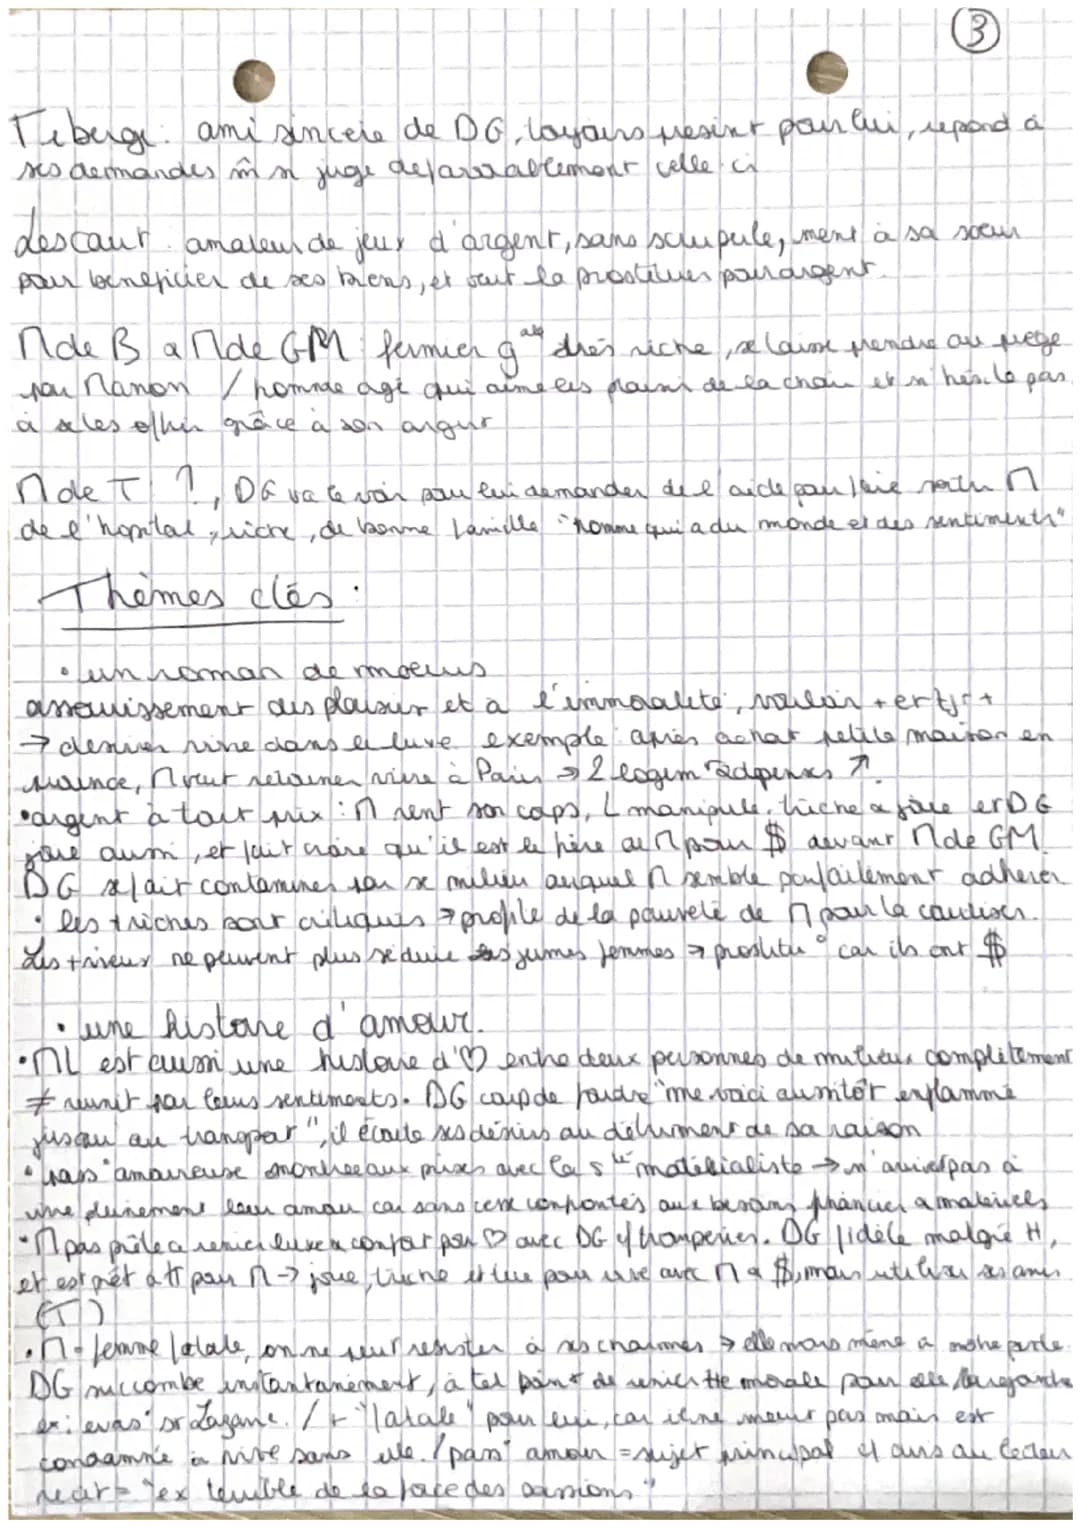 3
Tiberge : ami sincère de DG, toujours présent pour lui, répond à
ses demandes m̂ si juge défavorablement celle-ci
Lescaut : amateur de jeux d'argent, sans scrupule, ment à sa sœur
pour bénéficier de ses biens, et veut la prostituer pour argent.
M de B a M de GM : fermier gal très riche, se laisse prendre au piège
par Manon / homme agé qui aime les plaisirs de la chair et n'hésite pas
à se les offrir grâce à son argent
M de T : ?, DG va le voir pour lui demander de l'aide pour faire sortir M
de l'hopital, riche, de bonne famille "homme qui a du monde et des sentiments"
Thèmes clés :
• un roman de moeurs
assouvissement des plaisirs et à l'immoralité, vouloir + et tjr +
→ désirer vivre dans le luxe exemple : après achat petite maison en
M veut retourner vivre à Paris → 2 logem dépenses ↗.
• argent à tout prix : M vend son corps, L manipule, triche a joue et DG
joue aussi, et fait croire qu'il est le frère de M pour $ devant M de GM.
DG se fait contaminer par ce milieu auquel M semble parfaitement adhérer
• les + riches sont critiqués → profite de la pauvreté de M pour la courtiser.
Les + vieux ne peuvent plus séduire jeunes femmes → prostitu° car ils ont $
• une histoire d'amour.
• ML est aussi une histoire d'♡ entre deux personnes de milieux complètement
≠ réunit par leurs sentiments. DG coup de foudre "me voici aussitôt enflammé
jusqu'au transport", il écoute ses désirs au détriment de sa raison
• pass° amoureuse montrée aux prises avec la sté matérialiste → n'arrive pas à
vivre pleinement leur amour car sans cesse confrontés aux besoins financier a matériels
• M pas prête a renier luxe a confort pour ♡ avec DG tromperies. DG fidèle malgré tt,
et est prêt à tt pour M → joue, triche et tue pour vivre avec M a $, mais utiliser ses amis
(T)
• M = femme fatale, on ne peut résister à ses charmes → elle mène a notre perte.
DG succombe instantanément, à tel point de renier tte morale pour elle
ex : évas° st Lazare. / + "fatale" pour lui, car il ne meurt pas mais est
condamné à vivre sans elle. / pass° amour = sujet principal au lecteur
récit = "ex terrible de la force des passions"